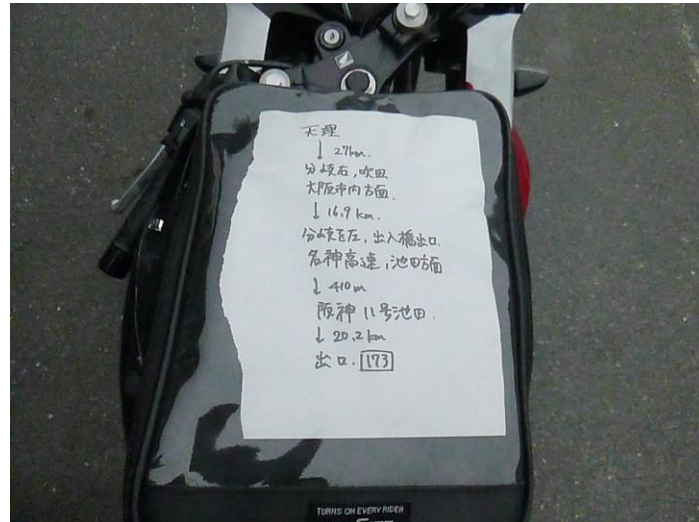 天理
↓ 27km.
分岐右,吹田
大阪市内方面.
↓ 16.9km.
分岐を左,出入橋出口.
名神高速,池田方面
↓ 410m
阪神 11号池田.
↓ 20.2km
出口. 173
TURNS ON EVERY RIDER